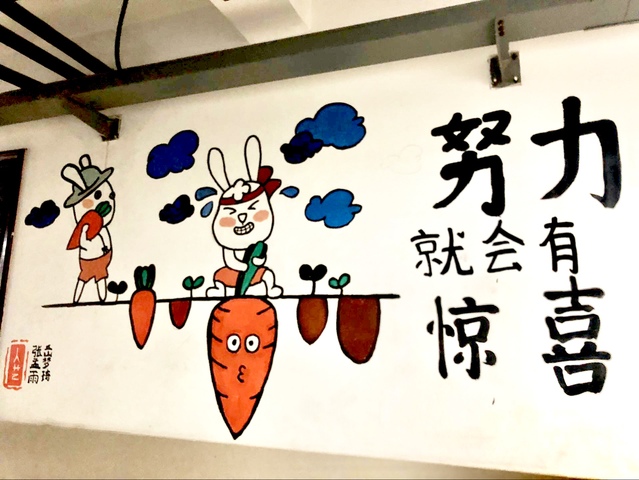 努力
就会有
惊喜
梦琦
张孟雨